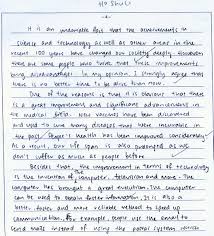 Ho Shuli
It is an undeniable fact that the achievements in
science and technology as well as other areas in the
recent 100 years have changed our society deeply. However
there are some people who that these improvements
bring disadvantages. In my opinion, I strongly agree that
there is no time to be alive than now.
One of the reasons is that it is obvious that there
is a great improvement and significant advancements in
the medical field. New vaccines have been discovered
and used to cure many diseases that were incurable in
the past. People's health has been improved considerably
As a result, our life span is also prolonged as we
don't suffer as much as people before
Besides that, the improvement in terms of technology
is the invention of the computer, television and more. The
computer has brought a great evolution. The computer
can be used to obtain information. It is also a
better, faster and more reliable method to speed up
communication. For example, people use the email to
send mails instead of using the postal system which